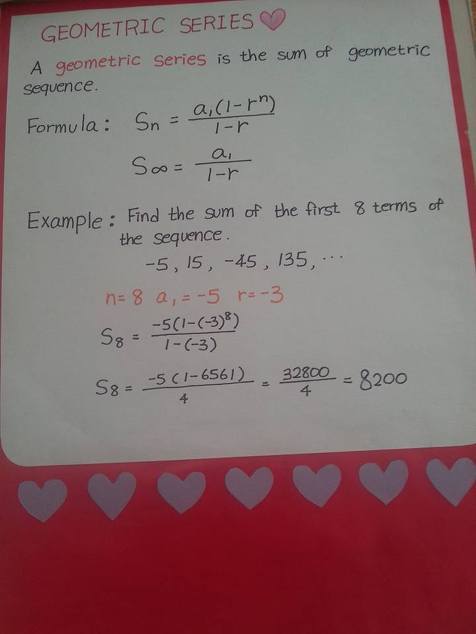 GEOMETRIC SERIES
A geometric series is the sum of geometric
sequence.
Formula: Sₙ = a₁(1-rⁿ)/1-r
S∞ = a₁/1-r
Example: Find the sum of the first 8 terms of
the sequence.
-5, 15, -45, 135, ...
n=8 a₁=-5 r=-3
S₈ = -5(1-(-3)⁸)/1-(-3)
S₈ = -5(1-6561)/4 = 32800/4 = 8200